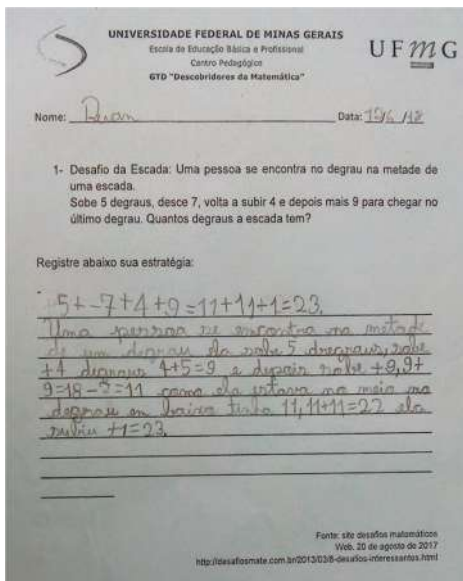 UNIVERSIDADE FEDERAL DE MINAS GERAIS
Escola de Educação Básica e Profissional
Centro Pedagógico
GTD "Descobridores da Matemática"
UFMG
Nome: Data:
1- Desafio da Escada: Uma pessoa se encontra no degrau na metade de
uma escada.
Sobe 5 degraus, desce 7, volta a subir 4 e depois mais 9 para chegar no
último degrau. Quantos degraus a escada tem?
Registre abaixo sua estratégia:
5+-7+4+9=11+11+1=23.
Uma pessoa se encontra na metade
de um degrau ela sobe 5 dregraus, sobe
+4 degraus 4+5=9 e depois sobe +9,9+
9=18-7=11 como ela estava no meio no
degrau em baixo tinha 11, 11+11=22 ela
subiu +1=23.
Fonte: site desafios matemáticos
Web. 20 de agosto de 2017
http://desafiosmate.com.br/2013/03/8-desafios-interessantes.html